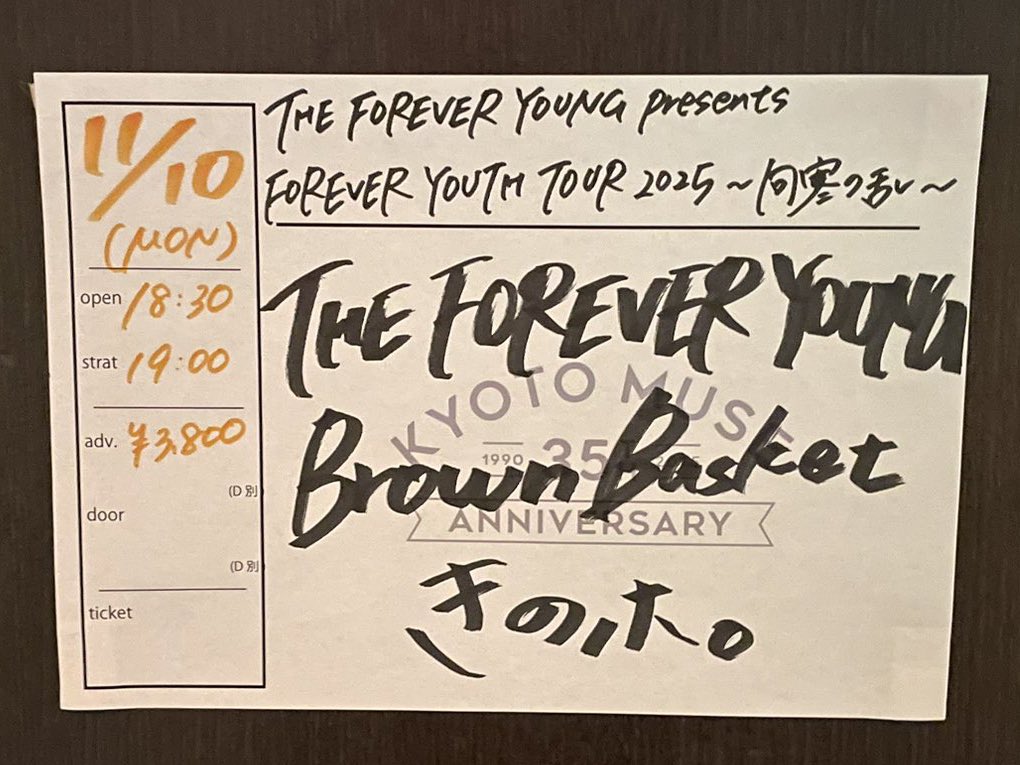 11/10
(MON)
open 18:30
strat 19:00
adv. ¥3,800
(D別)
door
(D別)
ticket
THE FOREVER YOUNG presents
FOREVER YOUTH TOUR 2025 ~向寒の ~
THE FOREVER YOUNG
KYOTO MUSE
Brown Basket
1990 35
ANNIVERSARY
きのホ。